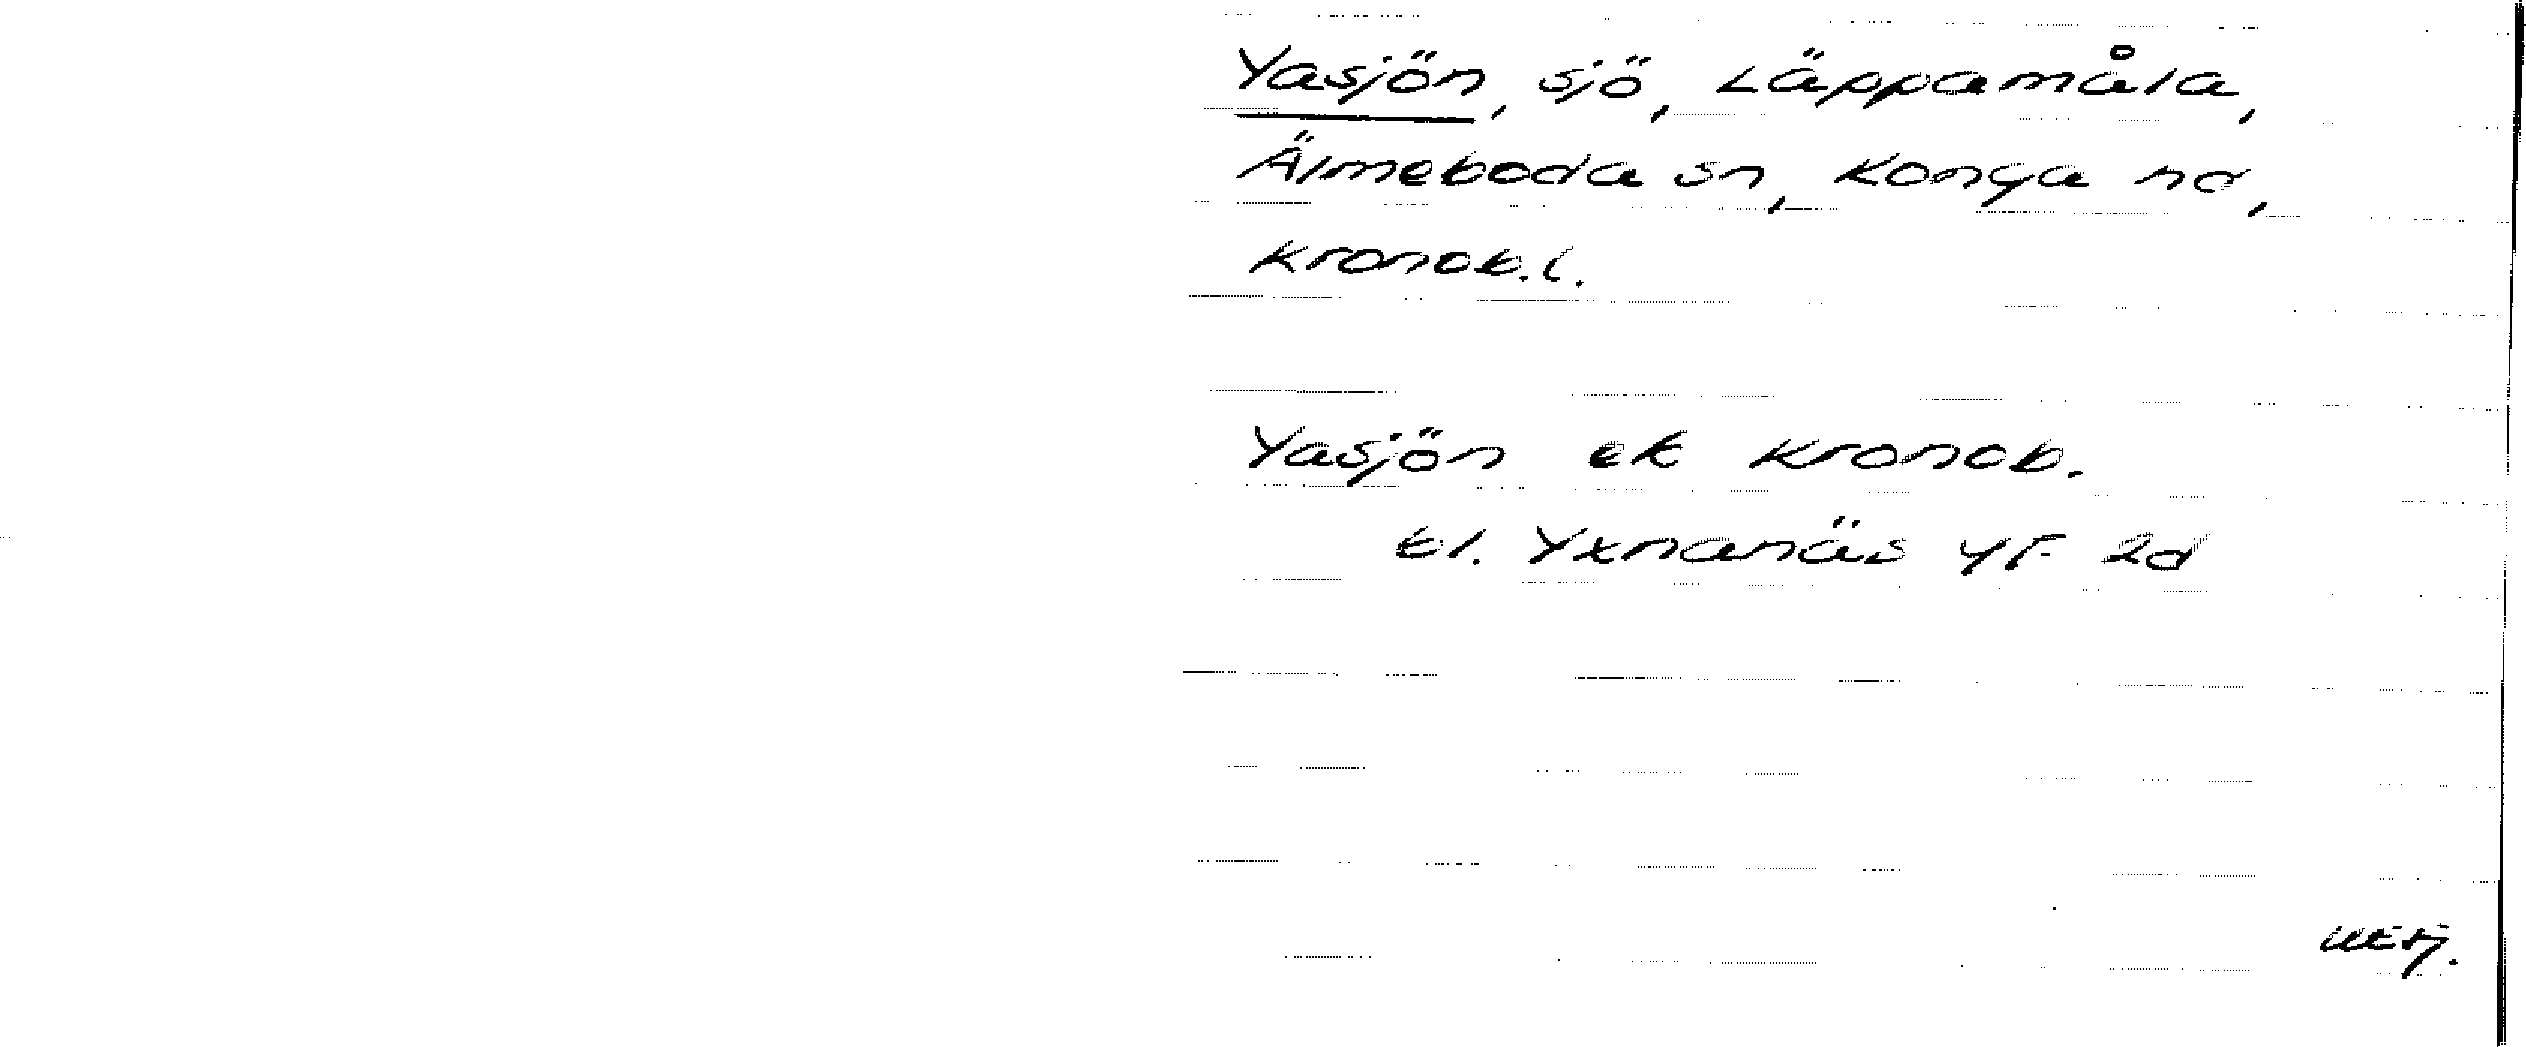 Yasjön, sjö, Läppamåla,
Älmeboda sn, Konga hd,
Kronob. l.
Yasjön ek Kronob.
bl. Yxnanäs 4F 2d